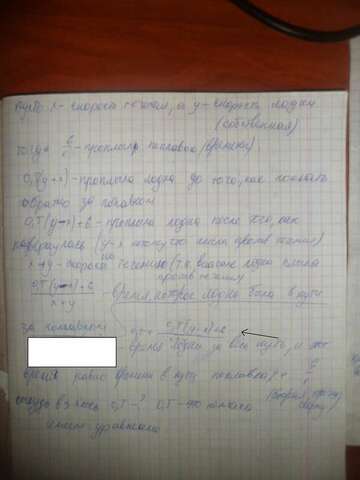 Пусть x - скорость течения, а y - скорость лодки
(собственная)
тогда 6/x - проплыл поплавок (времени)
0,7(y-x) - проплыла лодка до того, как поплыть
обратно за поплавком
0,7(y-x)+6 - проплыла лодка после того, как
повернулась (y-x потому что плыла против течения)
x+y - скорость по течению (т.к. вначале лодка плыла
против течения)
0,7(y-x)+6 / x+y - время, которое лодка была в пути
за поплавком
0,7 + 0,7(y-x)+6
время лодки за весь путь, и это
время равно времени в пути поплавка = 6/x
(второй, сверху)
откуда взялось 0,7-? 0,7 - это
уравнение